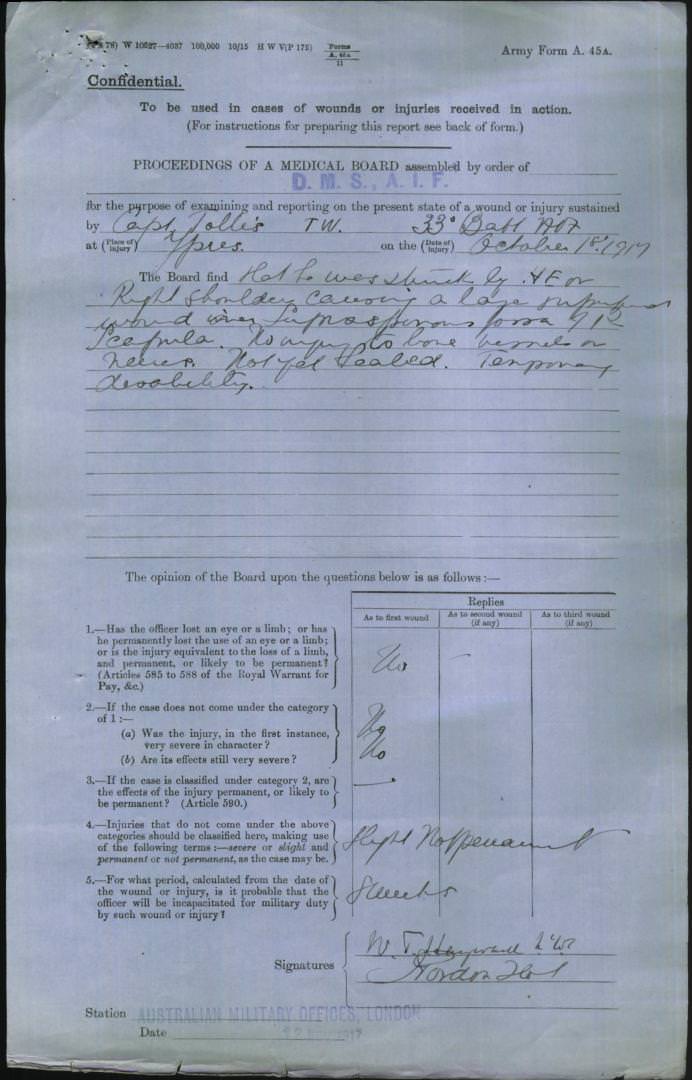 78) W 10527—4037 100,000 10/15 H W V(P 172) Forms A. 45a 11
Army Form A. 45A.
Confidential.
To be used in cases of wounds or injuries received in action.
(For instructions for preparing this report see back of form.)
PROCEEDINGS OF A MEDICAL BOARD assembled by order of
D. M. S., A. I. F.
for the purpose of examining and reporting on the present state of a wound or injury sustained
by Capt. Tollis T W. 33d Batt AIF
at (Place of injury) Ypres. on the (Date of injury) October 18th. 1917
The Board find that he was struck by H E on
Right shoulder causing a large superficial
wound over Supraspinous fossa of R
Scapula. No injury to bone vessels or
nerves. Not yet healed. Temporary
disability.
The opinion of the Board upon the questions below is as follows:—
Replies
As to first wound
As to second wound (if any)
As to third wound (if any)
1.—Has the officer lost an eye or a limb; or has
he permanently lost the use of an eye or a limb;
or is the injury equivalent to the loss of a limb,
and permanent, or likely to be permanent?
(Articles 585 to 588 of the Royal Warrant for
Pay, &c.)
No
2.—If the case does not come under the category
of 1:—
(a) Was the injury, in the first instance,
very severe in character?
No
(b) Are its effects still very severe?
No
3.—If the case is classified under category 2, are
the effects of the injury permanent, or likely to
be permanent? (Article 590.)
—
4.—Injuries that do not come under the above
categories should be classified here, making use
of the following terms:—severe or slight and
permanent or not permanent, as the case may be.
Slight Not permanent
5.—For what period, calculated from the date of
the wound or injury, is it probable that the
officer will be incapacitated for military duty
by such wound or injury?
weeks
Signatures
W. T. Hayward
Gordon
Station AUSTRALIAN MILITARY OFFICES, LONDON
Date 1917